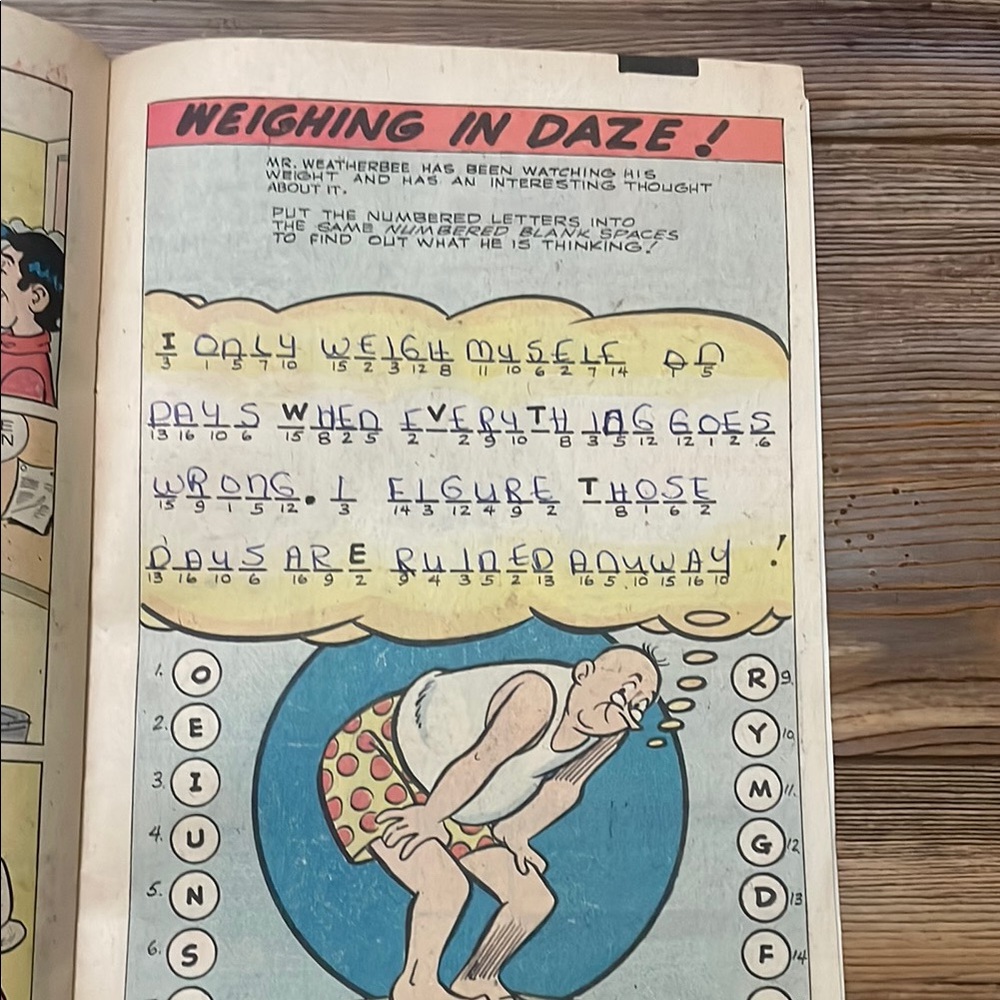 WEIGHING IN DAZE!
MR. WEATHERBEE HAS BEEN WATCHING HIS
WEIGHT AND HAS AN INTERESTING THOUGHT
ABOUT IT.
PUT THE NUMBERED LETTERS INTO
THE SAME NUMBERED BLANK SPACES
TO FIND OUT WHAT HE IS THINKING!
I ONLY WEIGH MYSELF ON
3 1 5 7 10 15 2 3 12 8 11 10 6 2 7 14 1 5
DAYS WHEN EVERYTHING GOES
13 16 10 6 15 8 2 5 2 2 9 10 8 3 5 12 12 1 2 6
WRONG. I FIGURE THOSE
15 9 1 5 12 3 14 3 12 4 9 2 8 1 6 2
DAYS ARE RUINED ANYWAY!
13 16 10 6 16 9 2 9 4 3 5 2 13 16 5 10 15 16 10
1. O
2. E
3. I
4. U
5. N
6. S
R 9.
Y 10.
M 11.
G 12
D 13
F 14